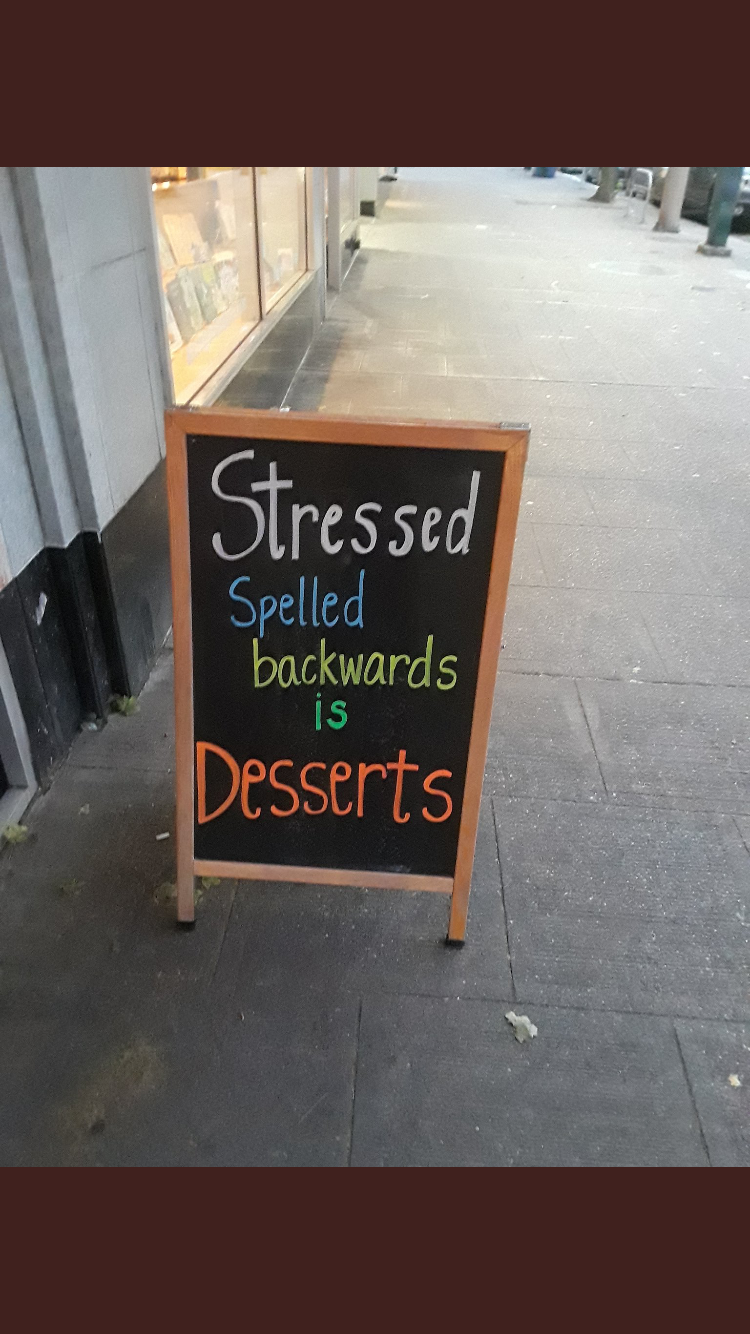 Stressed
Spelled
backwards
is
Desserts